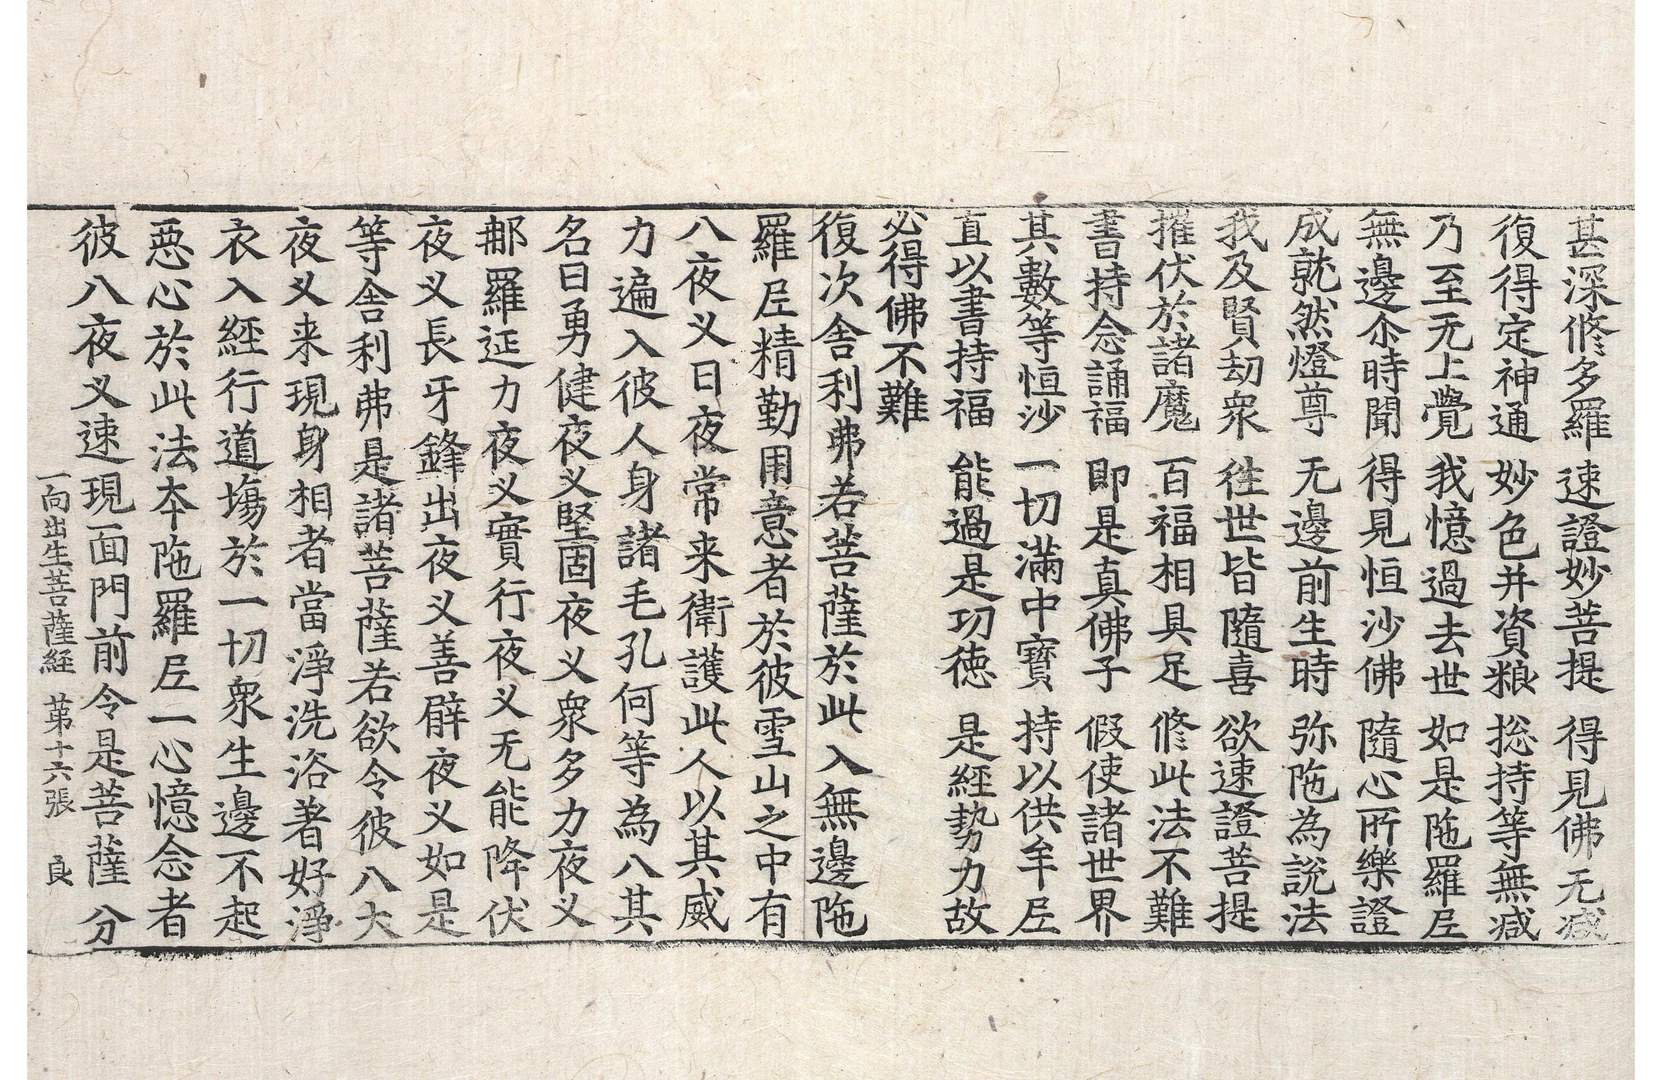 甚深修多羅 速證妙菩提 得見佛无減
復得定神通 妙色并資粮 捴持等無減
乃至无上覺 我憶過去世 如是陁羅𡰱
無邊尒時聞 得見恒沙佛 隨心所樂證
成就然燈尊 无邊前生時 弥陁為說法
我及賢劫衆 徃世皆隨喜 欲速證菩提
摧伏於諸魔 百福相具足 修此法不難
書持念誦福 即是真佛子 假使諸世界
其數等恒沙 一切滿中寶 持以供牟𡰱
直以書持福 能過是功徳 是經勢力故
必得佛不難
復次舍利弗若菩薩於此入無邊陁
羅𡰱精勤用意者於彼雪山之中有
八夜义日夜常来衛護此人以其威
力遍入彼人身諸毛孔何等為八其
名曰勇健夜义堅固夜义衆多力夜义
郍羅延力夜义實行夜义无能降伏
夜义長牙鋒出夜义善臂夜义如是
等舍利弗是諸菩薩若欲令彼八大
夜义来現身相者當淨洗浴著好淨
衣入經行道塲於一切衆生邊不起
惡心於此法夲陁羅𡰱一心憶念者
彼八夜义速現面門前令是菩薩分
一向出生菩薩経 第十六張 良